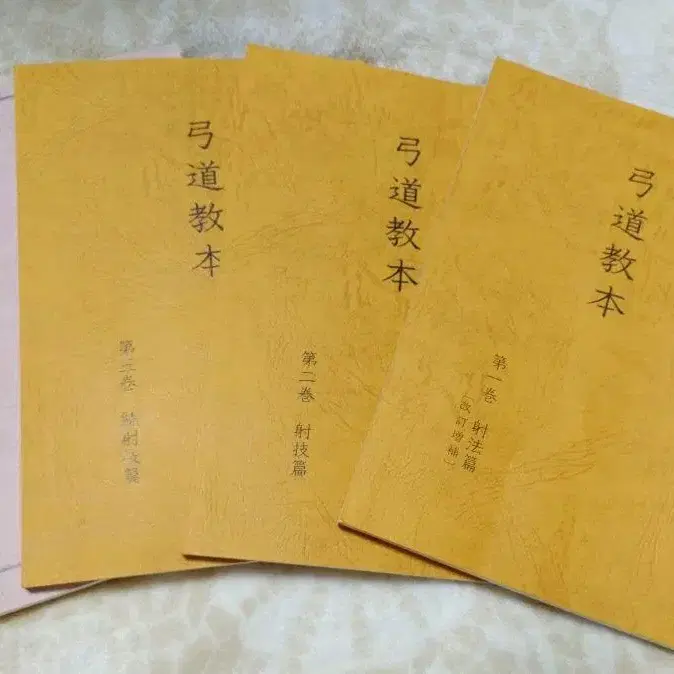 弓道教本
第一巻 射法篇
〔改訂増補〕
弓道教本
第二巻 射技篇
弓道教本
第三巻 續射技篇